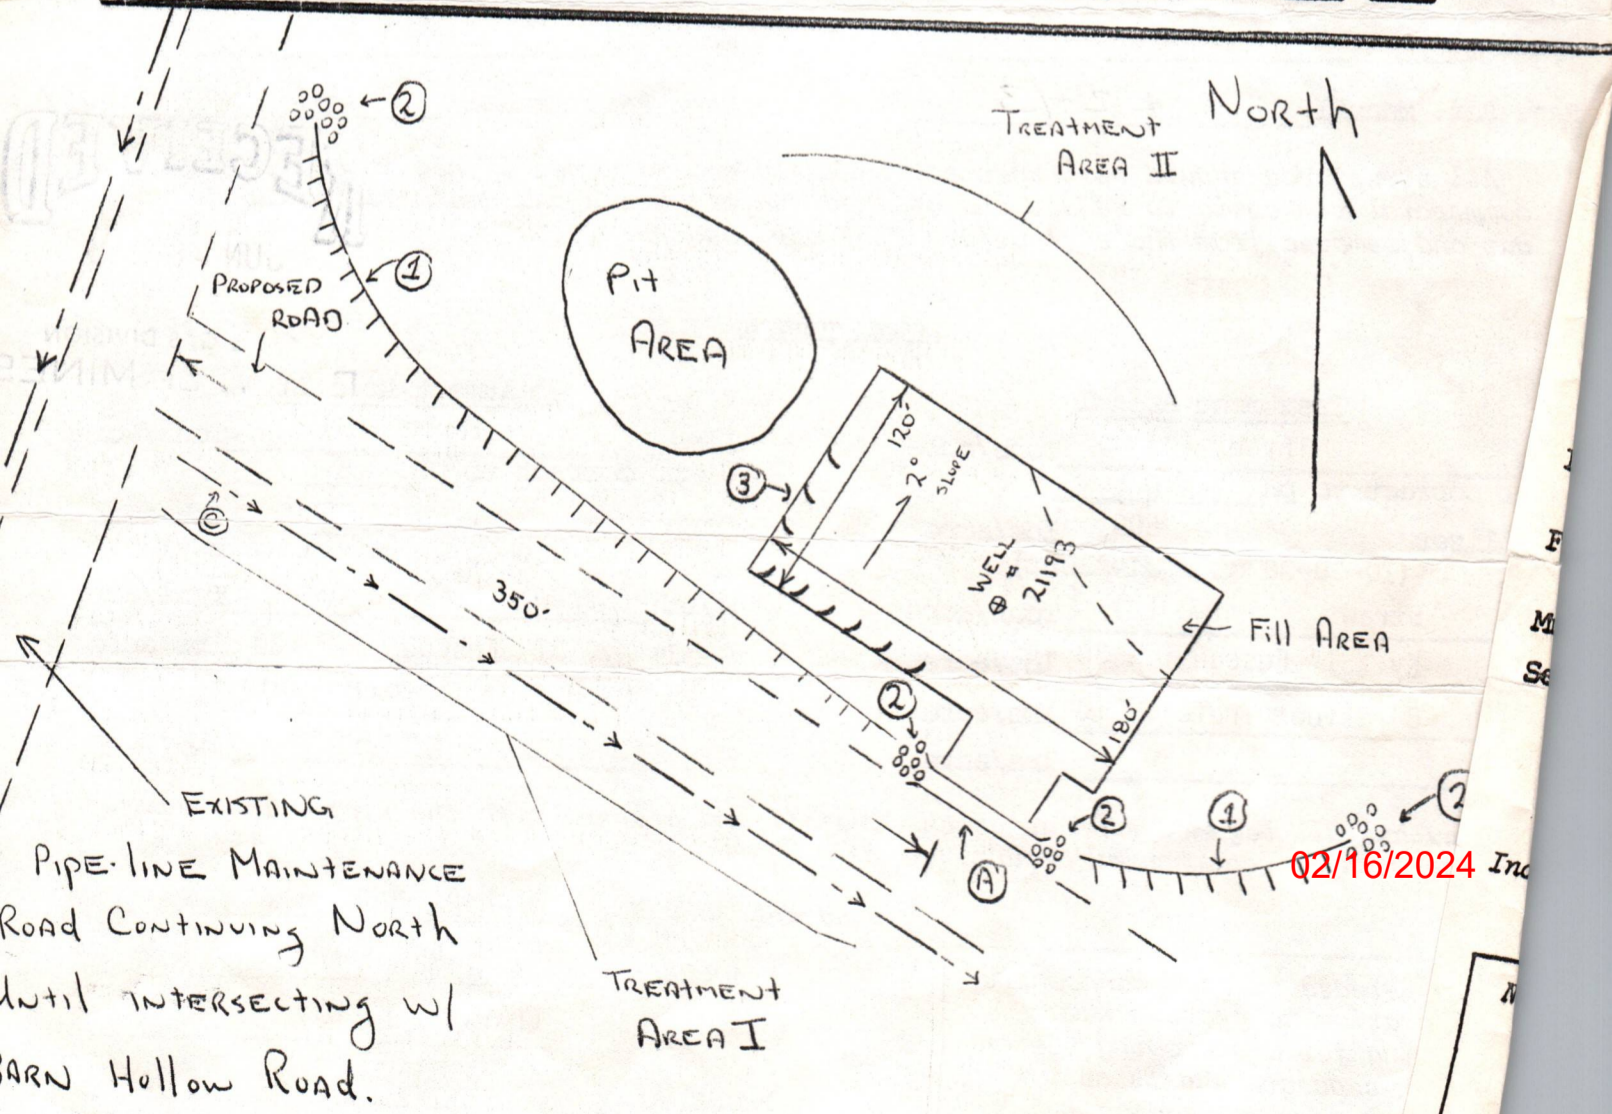 ②
NORTH
TREATMENT
AREA II
①
PROPOSED
ROAD
Pit
AREA
120'
2°
SLOPE
③
WELL
#
21193
Ⓒ
350'
Fill AREA
②
180'
②
①
②
Ⓐ
02/16/2024
EXISTING
PIPE-LINE MAINTENANCE
ROAD CONTINUING NORTH
UNTIL INTERSECTING W/
BARN Hollow ROAD.
TREATMENT
AREA I